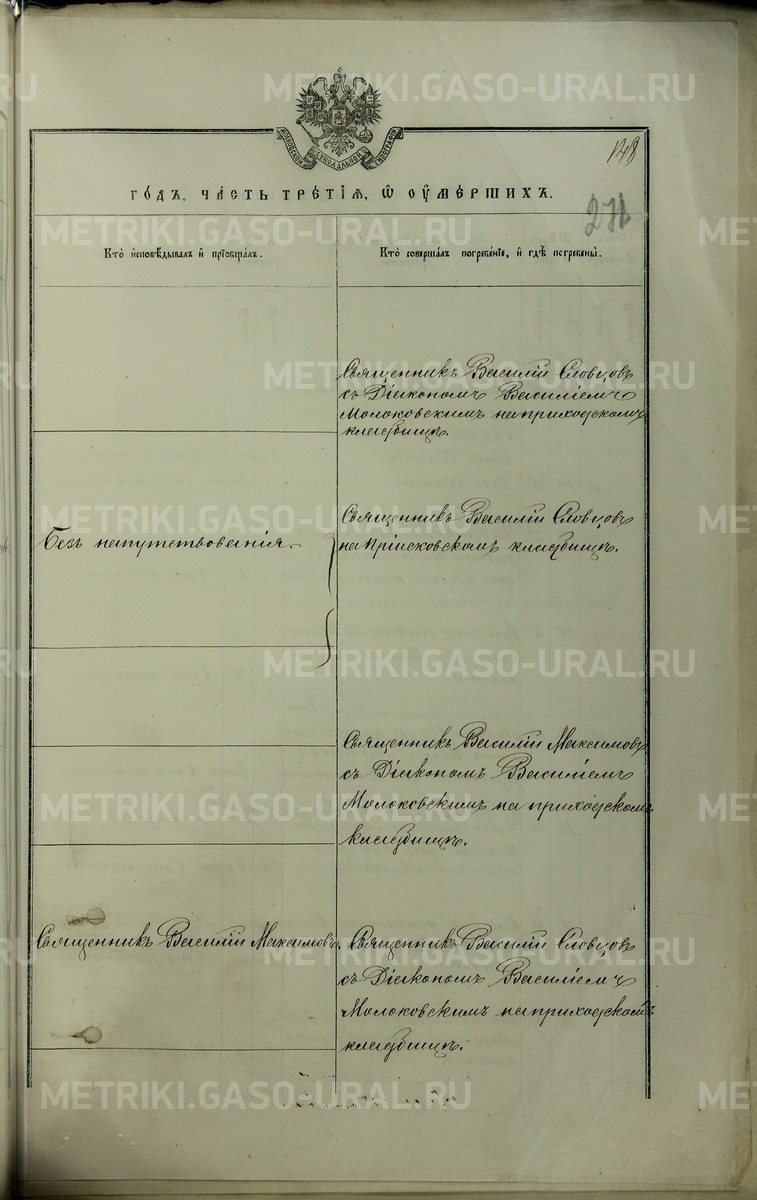 МОСКОВСКОЙ СѴНОДАЛЬНОЙ ТИПОГРАФІИ
148
ГО́ДЪ, ЧА́СТЬ ТРЕ́ТІѦ, Ѿ ОУМЕ́РШИХЪ.
Кто̀ и҆сповѣ́дывалъ и҆ прїобща́лъ.
Кто̀ соверша́лъ погребе́нїе, и҆ гдѣ̀ погребены̀.
Священникъ Василій Словцовъ
съ Діакономъ Василіемъ
Молоковскимъ на приходскомъ
кладбищѣ.
Безъ напутствованія.
Священникъ Василій Словцовъ
на Пріисковскомъ кладбищѣ.
Священникъ Василій Максимовъ
съ Діакономъ Василіемъ
Молоковскимъ на приходскомъ
кладбищѣ.
Священникъ Василій Максимовъ.
Священникъ Василій Словцовъ
съ Діакономъ Василіемъ
Молоковскимъ на приходскомъ
кладбищѣ.
METRIKI.GASO-URAL.RU